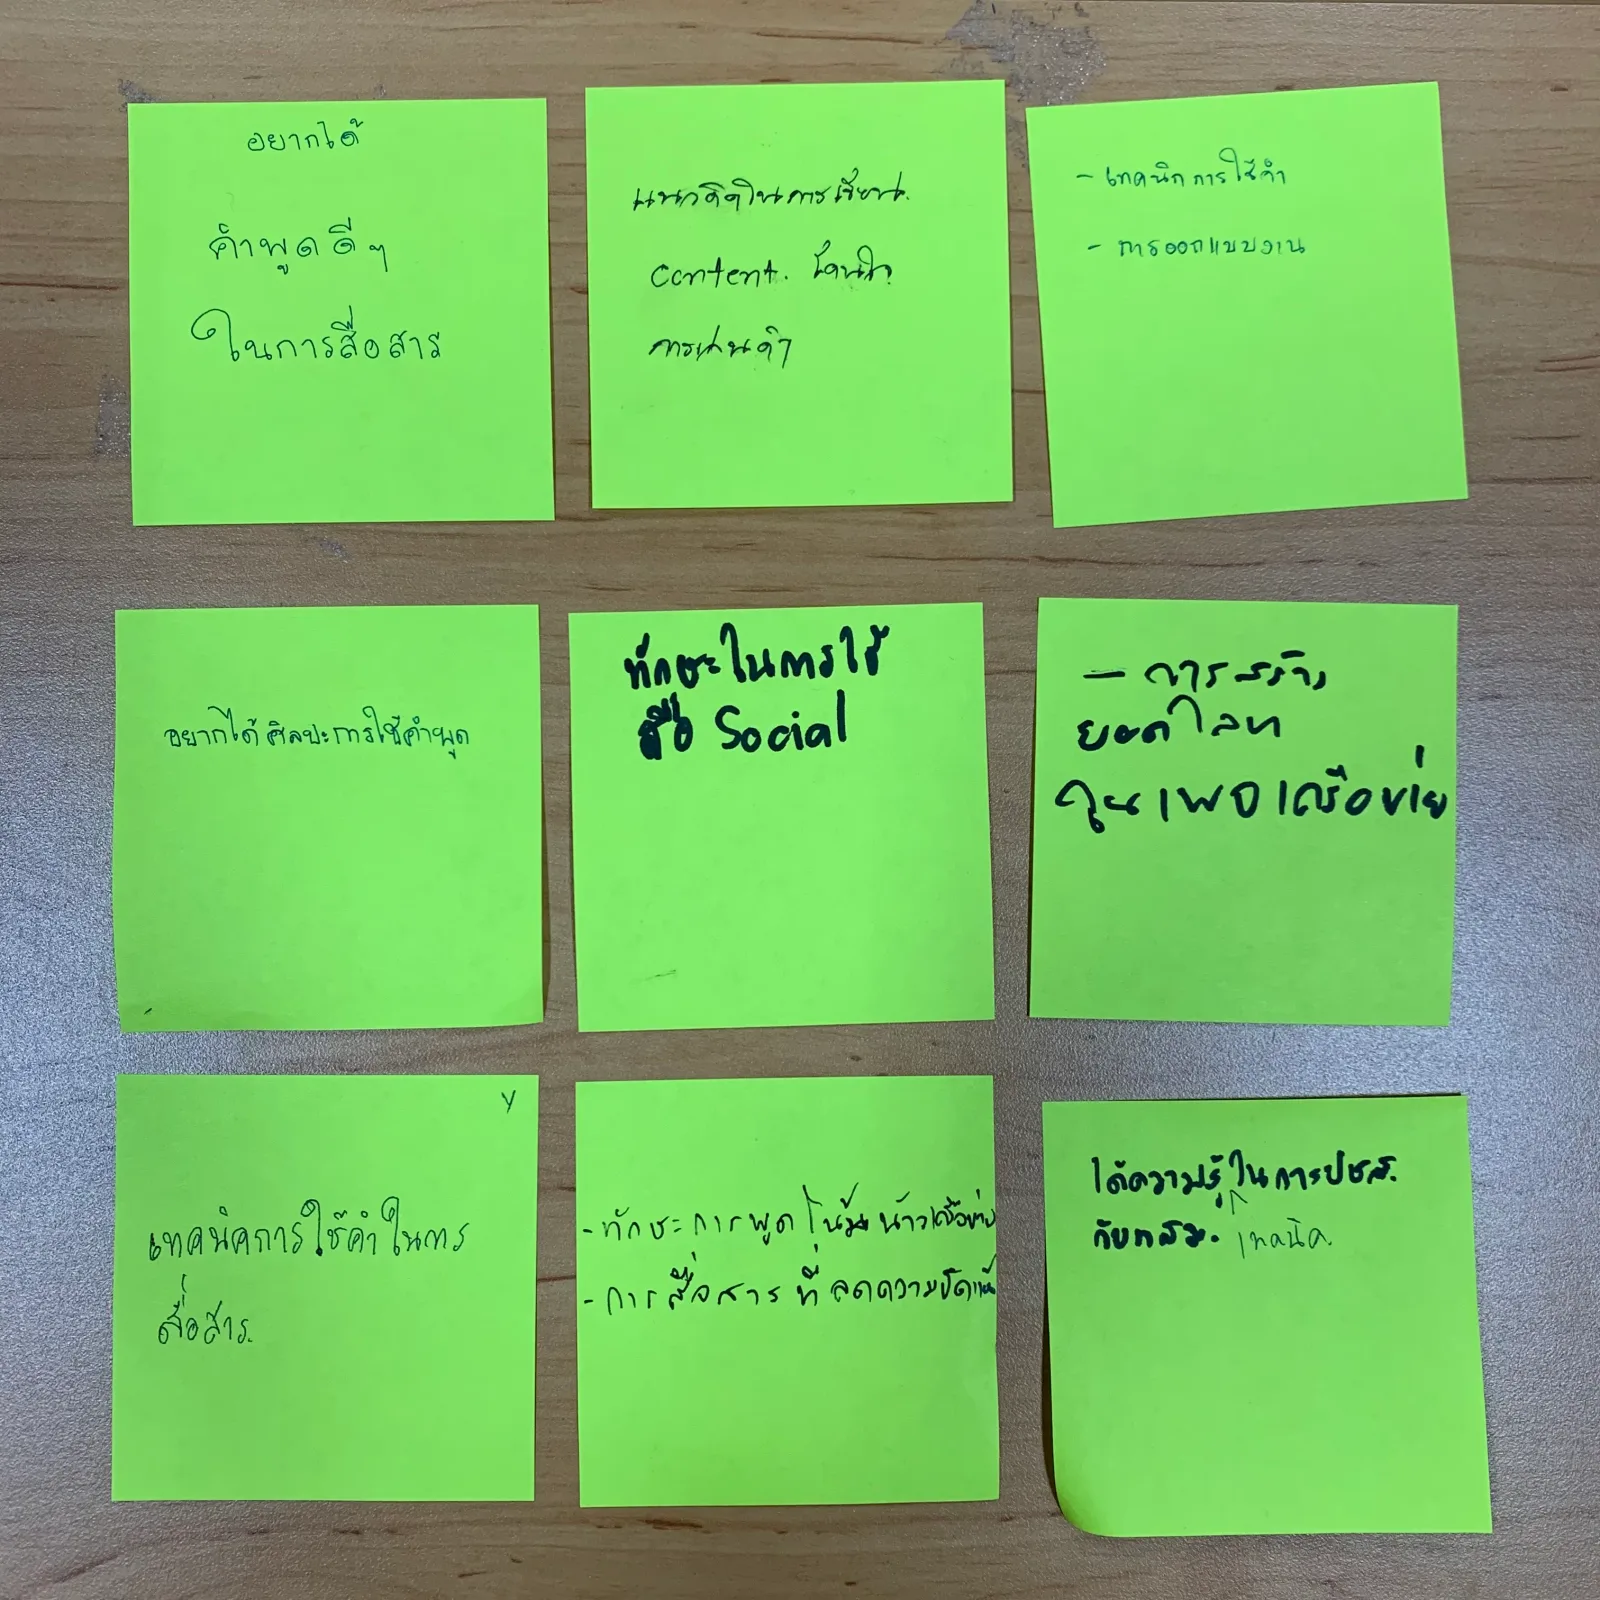 อยากได้
คำพูดดีๆ
ในการสื่อสาร
แนวคิดในการเขียน.
content. โดนใจ
การ
- เทคนิกการใช้คำ
- การออกแบบงาน
อยากได้ศิลปะการใช้คำพูด
ทักษะในการใช้
สื่อ Social
- การสร้าง
ยอดไลท
ในเพจเครือข่าย
เทคนิคการใช้คำในการ
สื่อสาร.
- ทักษะการพูดโน้มน้าวเครือข่าย
- การสื่อสารที่ลดความขัดแย้ง
ได้ความรู้ในการปชส.
กับกสม. เทคนิค.